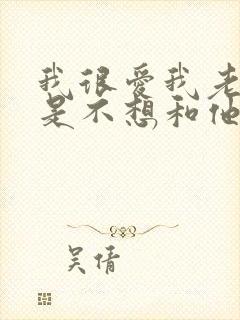 我很爱我老
是不想和他
吴倩